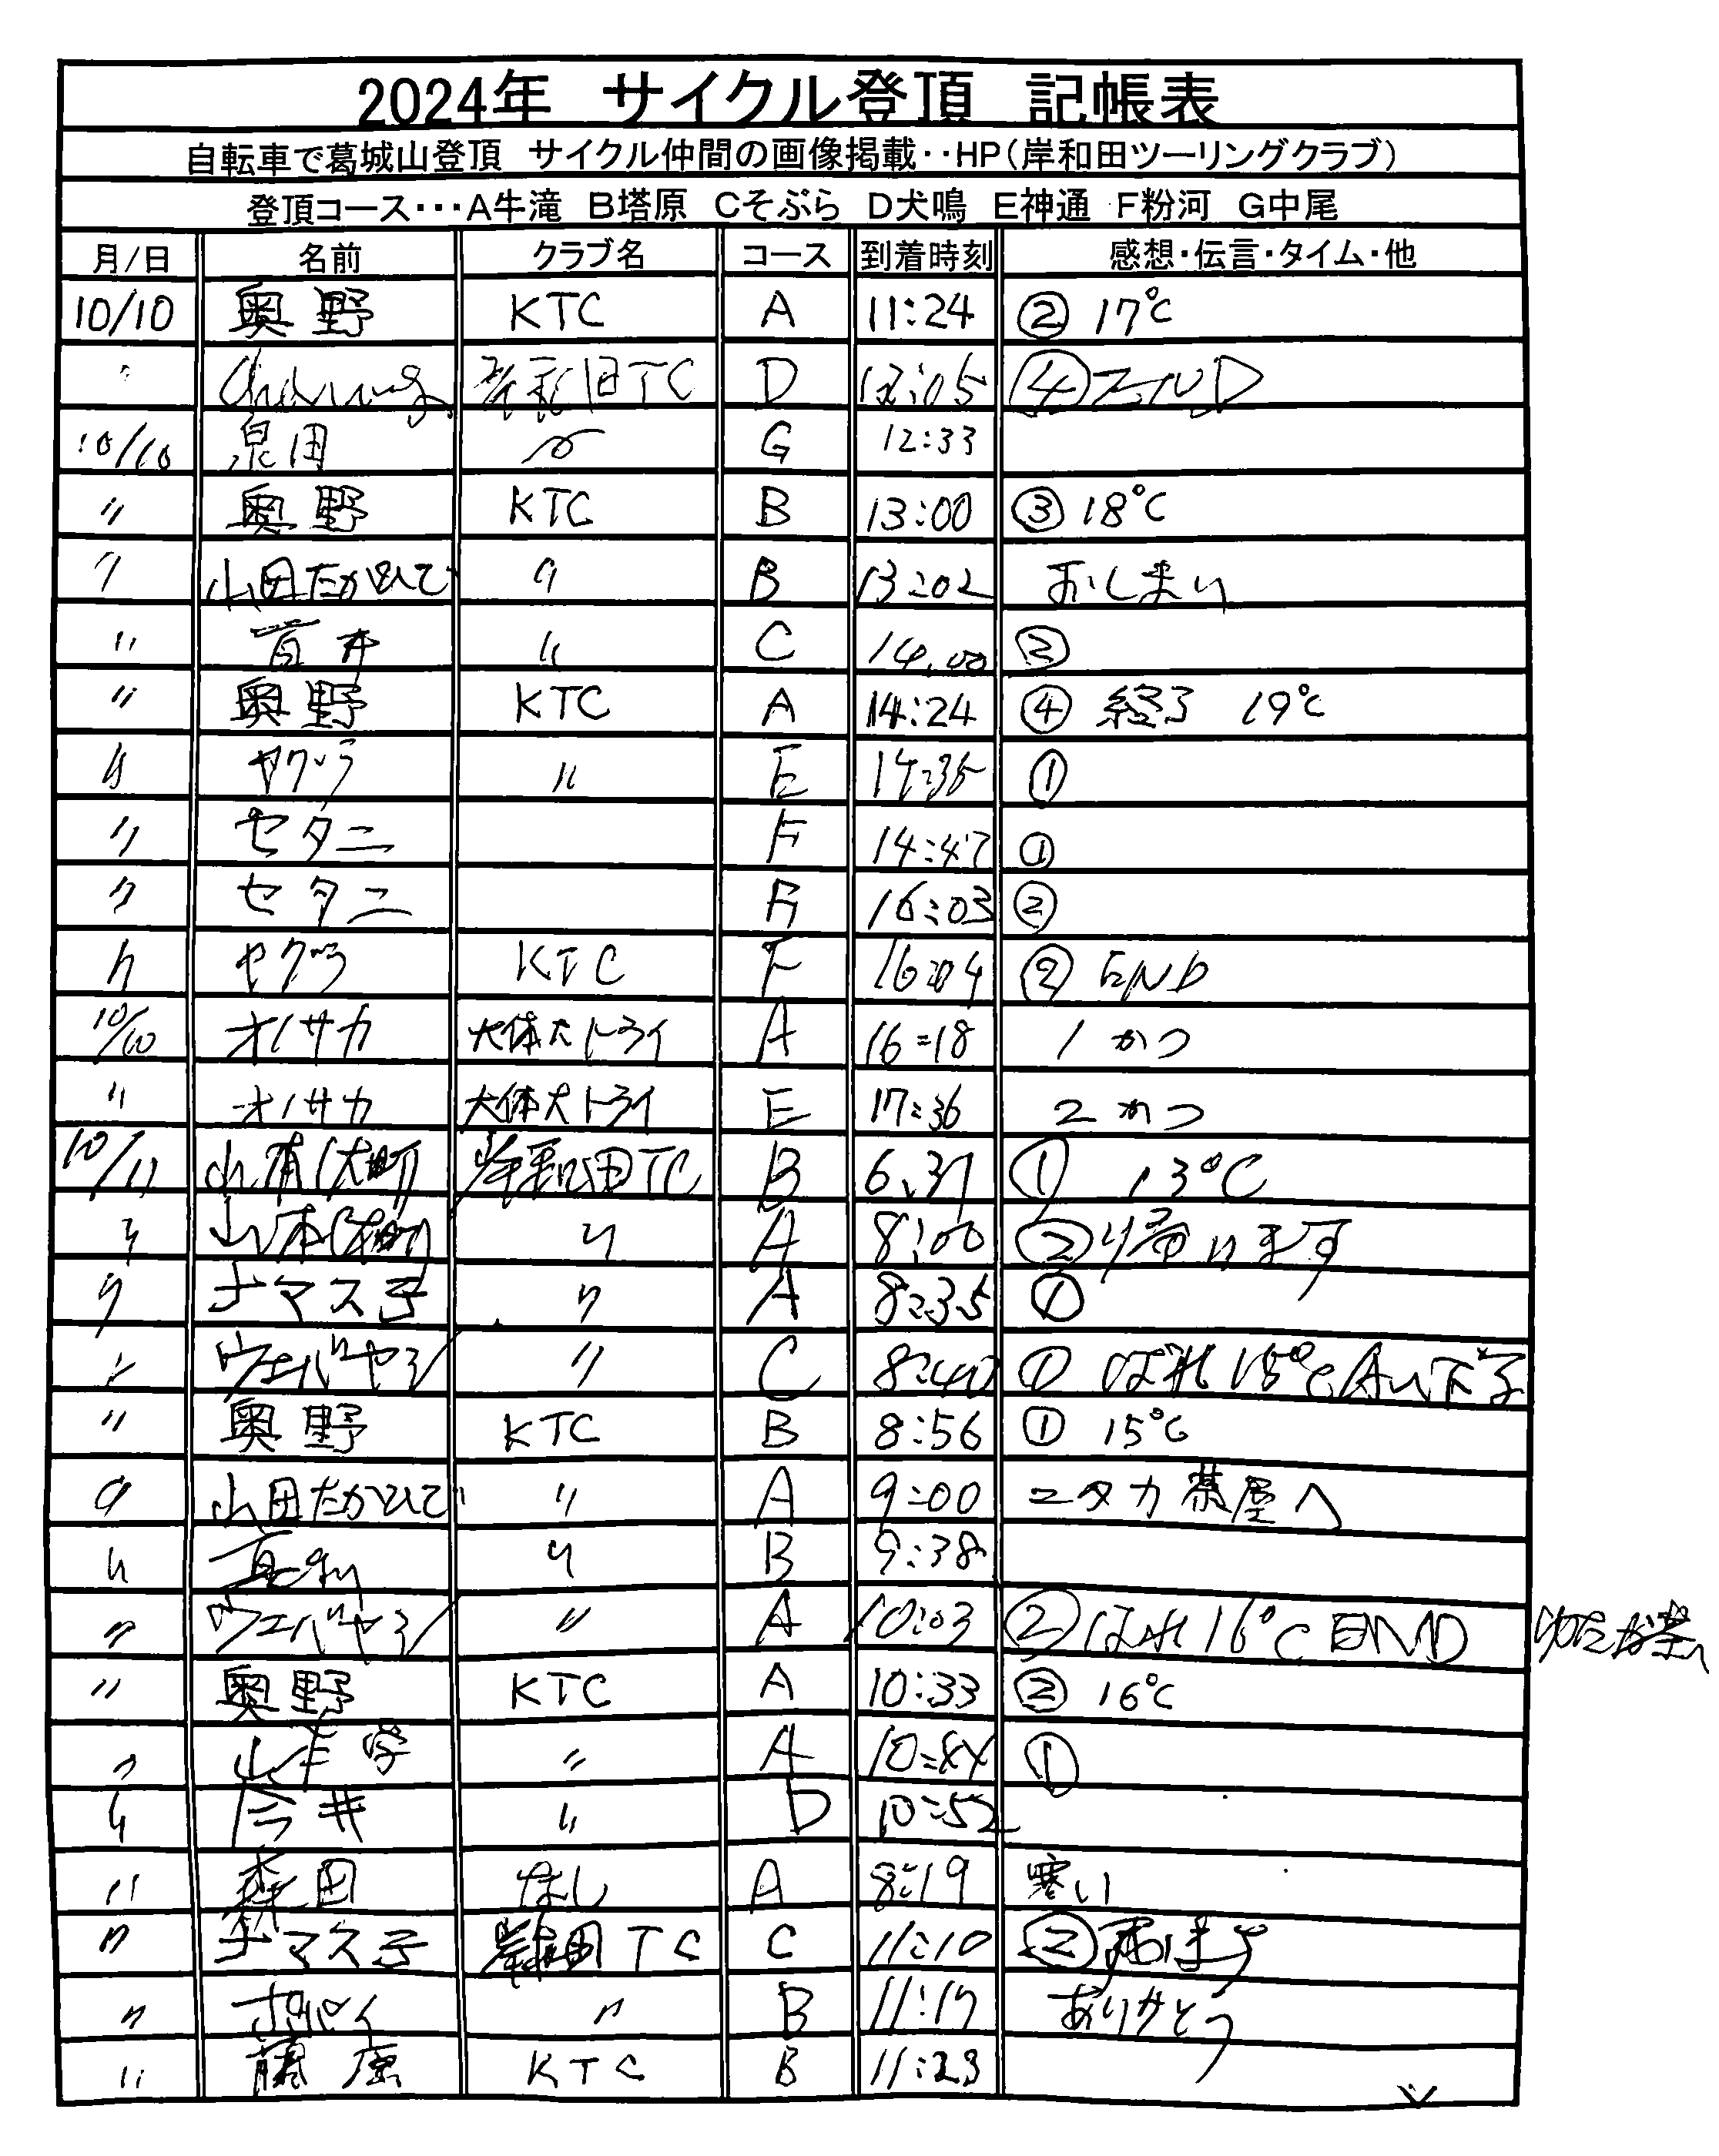 2024年 サイクル登頂 記帳表
自転車で葛城山登頂 サイクル仲間の画像掲載‥HP(岸和田ツーリングクラブ)
登頂コース･･･A牛滝 B塔原 Cそぶら D犬鳴 E神通 F粉河 G中尾
月/日 名前 クラブ名 コース 到着時刻 感想･伝言･タイム･他
10/10 奥野 KTC A 11:24 ② 17℃
〃 岸和田TC D 12:05 ④ END
10/10 泉田 〃 G 12:33
〃 奥野 KTC B 13:00 ③ 18℃
〃 山田たかひで 〃 B 13:02 おしまい
〃 〃 C 14:00 ②
〃 奥野 KTC A 14:24 ④ 終了 19℃
〃 ヤグラ 〃 E 14:35 ①
〃 セタニ F 14:47 ①
〃 セタニ F 16:03 ②
〃 ヤグラ KTC F 16:04 ② END
10/10 オノサカ 大体大トライ A 16:18 1かつ
〃 オノサカ 大体大トライ E 17:36 2かつ
10/11 山本 岸和田TC B 6:37 ① 13℃
〃 山本 〃 A 8:00 ② 帰ります
〃 ナマス子 〃 A 8:35 ①
〃 ウエバヤシ 〃 C 8:40 ① はれ 15℃ Aへ下る
〃 奥野 KTC B 8:56 ① 15℃
〃 山田たかひで 〃 A 9:00 ユタカ茶屋へ
〃 〃 B 9:38
〃 ウエバヤシ 〃 A 10:03 ② はれ 16℃ END
〃 奥野 KTC A 10:33 ② 16℃
〃 〃 A 10:44 ①
〃 今井 〃 D 10:52
〃 森田 なし A 8:19 寒い
〃 ナマス子 岸和田TC C 11:10 ②
〃 ポパイ 〃 B 11:17 ありがとう
〃 藤原 KTC B 11:23